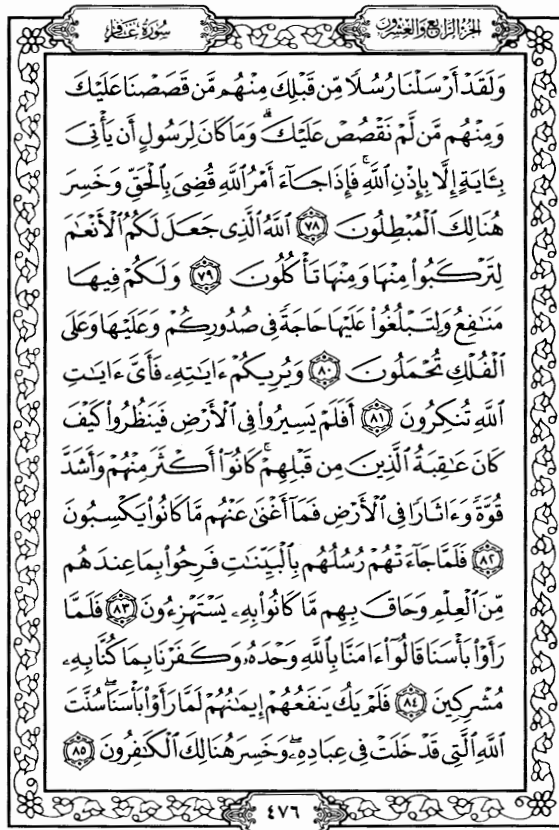 سُورَةُ غَافِرٍ
الجُزءُ الرَّابِعُ وَالعِشْرُونَ
وَلَقَدْ أَرْسَلْنَا رُسُلًا مِّن قَبْلِكَ مِنْهُم مَّن قَصَصْنَا عَلَيْكَ
وَمِنْهُم مَّن لَّمْ نَقْصُصْ عَلَيْكَ ۗ وَمَا كَانَ لِرَسُولٍ أَن يَأْتِىَ
بِـَٔايَةٍ إِلَّا بِإِذْنِ ٱللَّهِ ۚ فَإِذَا جَآءَ أَمْرُ ٱللَّهِ قُضِىَ بِٱلْحَقِّ وَخَسِرَ
هُنَالِكَ ٱلْمُبْطِلُونَ ٧٨ ٱللَّهُ ٱلَّذِى جَعَلَ لَكُمُ ٱلْأَنْعَـٰمَ
لِتَرْكَبُوا۟ مِنْهَا وَمِنْهَا تَأْكُلُونَ ٧٩ وَلَكُمْ فِيهَا
مَنَـٰفِعُ وَلِتَبْلُغُوا۟ عَلَيْهَا حَاجَةً فِى صُدُورِكُمْ وَعَلَيْهَا وَعَلَى
ٱلْفُلْكِ تُحْمَلُونَ ٨٠ وَيُرِيكُمْ ءَايَـٰتِهِۦ فَأَىَّ ءَايَـٰتِ
ٱللَّهِ تُنكِرُونَ ٨١ أَفَلَمْ يَسِيرُوا۟ فِى ٱلْأَرْضِ فَيَنظُرُوا۟ كَيْفَ
كَانَ عَـٰقِبَةُ ٱلَّذِينَ مِن قَبْلِهِمْ ۚ كَانُوٓا۟ أَكْثَرَ مِنْهُمْ وَأَشَدَّ
قُوَّةً وَءَاثَارًا فِى ٱلْأَرْضِ فَمَآ أَغْنَىٰ عَنْهُم مَّا كَانُوا۟ يَكْسِبُونَ
٨٢ فَلَمَّا جَآءَتْهُمْ رُسُلُهُم بِٱلْبَيِّنَـٰتِ فَرِحُوا۟ بِمَا عِندَهُم
مِّنَ ٱلْعِلْمِ وَحَاقَ بِهِم مَّا كَانُوا۟ بِهِۦ يَسْتَهْزِءُونَ ٨٣ فَلَمَّا
رَأَوْا۟ بَأْسَنَا قَالُوٓا۟ ءَامَنَّا بِٱللَّهِ وَحْدَهُۥ وَكَفَرْنَا بِمَا كُنَّا بِهِۦ
مُشْرِكِينَ ٨٤ فَلَمْ يَكُ يَنفَعُهُمْ إِيمَـٰنُهُمْ لَمَّا رَأَوْا۟ بَأْسَنَا ۖ سُنَّتَ
ٱللَّهِ ٱلَّتِى قَدْ خَلَتْ فِى عِبَادِهِۦ ۖ وَخَسِرَ هُنَالِكَ ٱلْكَـٰفِرُونَ ٨٥
٤٧٦